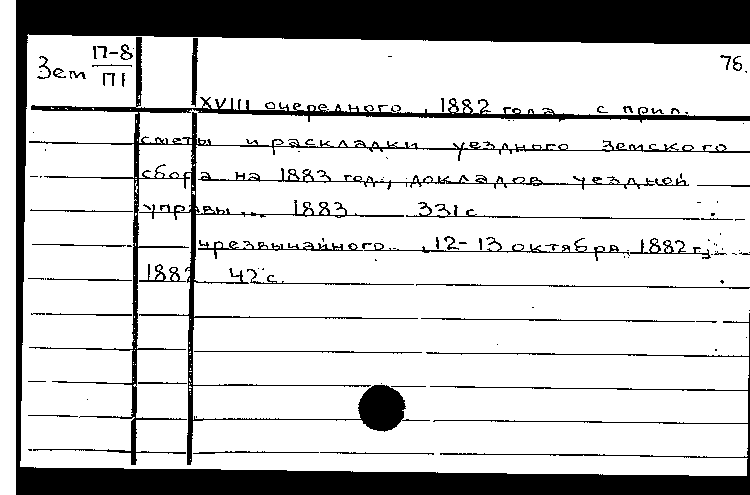 Зем П-8 76.
П1
XVIII очередного , 1882 года, с прил.
сметы и раскладки уездного земского
сбора на 1883 год, докладов уездной
управы... 1883. 331 с.
чрезвычайного , 12-13 октября, 1882 г.,
1882 42 с.